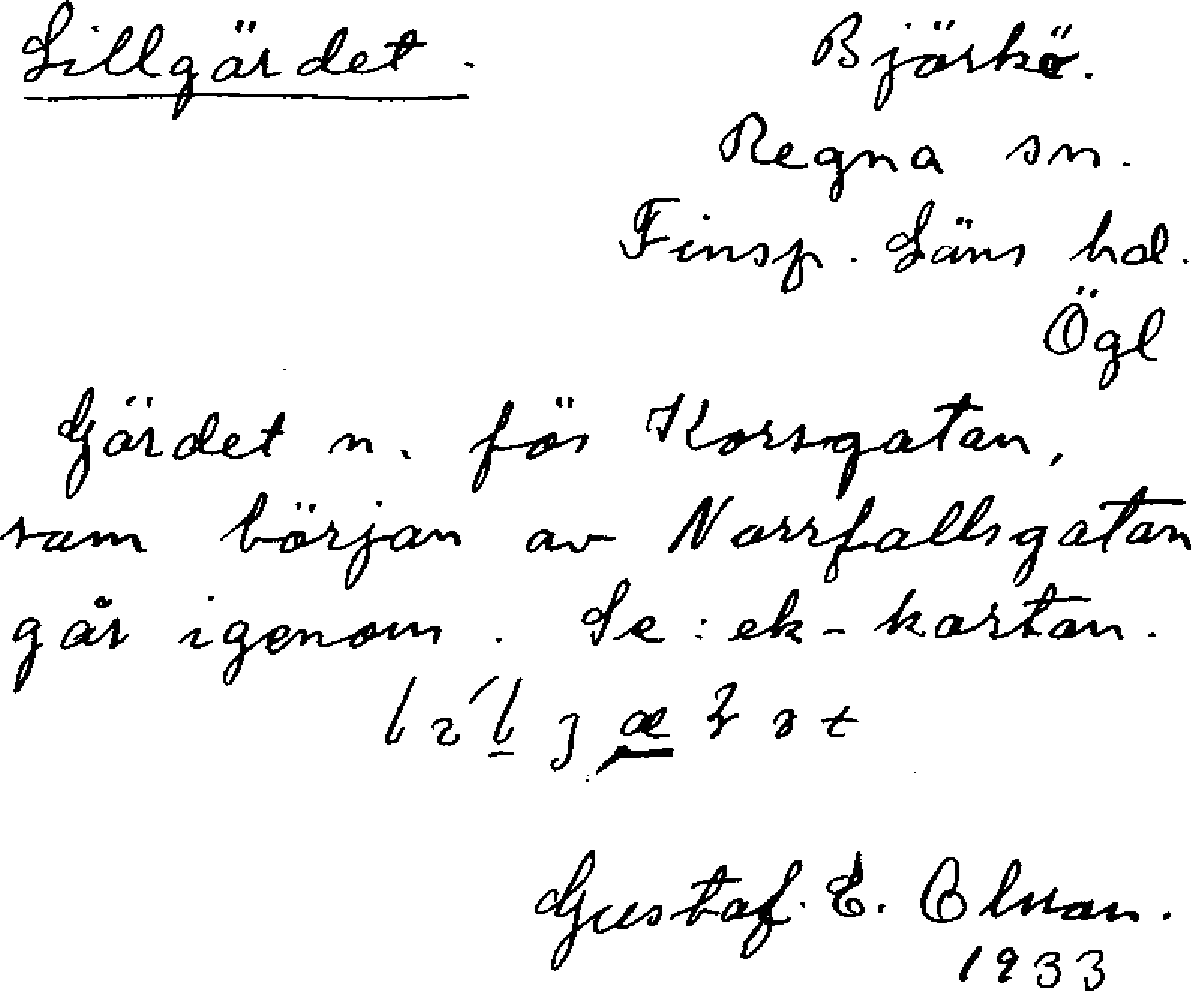 Lillgärdet. Björkö.
Regna sn.
Finsp. Läns hd.
Ögl
Gärdet n. för Korsgatan,
som början av Norrfallsgatan
går igenom. Se: ek-kartan.
Gustaf. E.
1933